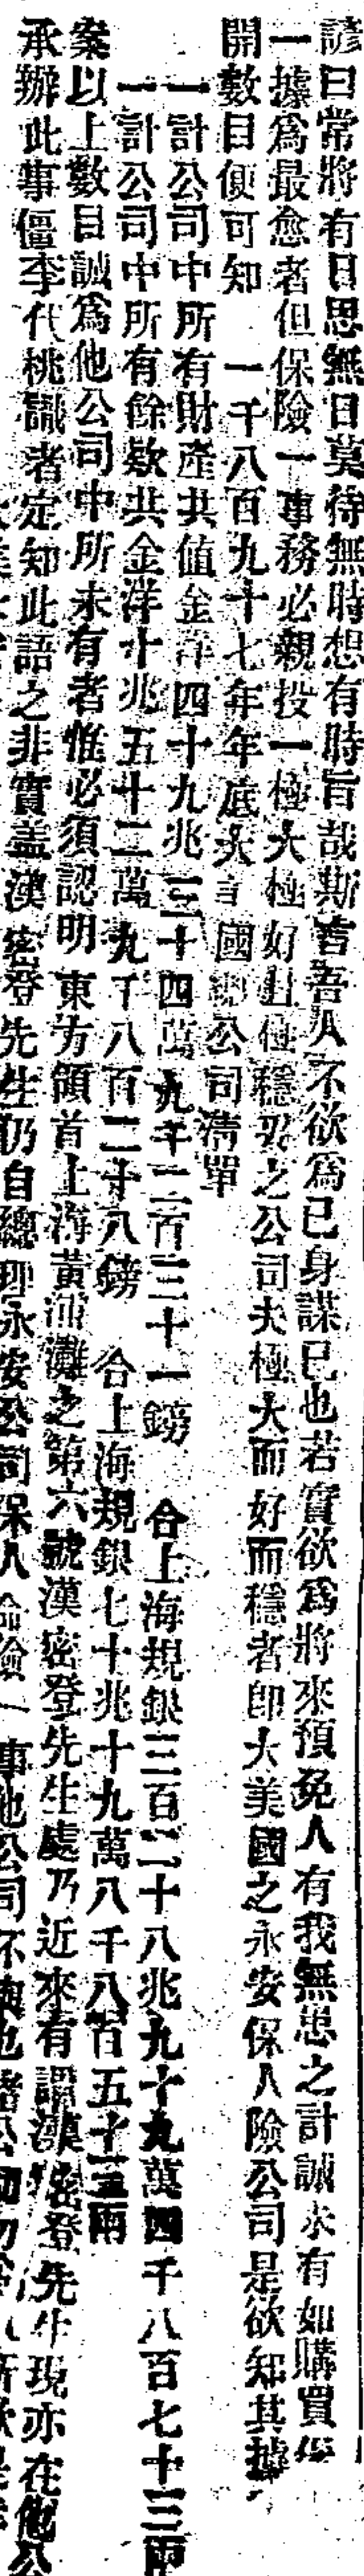 諺曰常將有日思無日莫待無時想有時旨哉斯言吾人不欲爲己身謀已也若實欲爲將來預免人有我無患之計誠未有如購買保
一據爲最愈者但保險一事務必親投一極大極好且極穩妥之公司夫極大而好而穩者即大美國之永安保人險公司是欲知其據
開數目便可知 一千八百九十七年年底大 國 公司清單
一計公司中所有財產共值金洋四十九兆三十四萬九千二百三十一鎊 合上海規銀三百二十八兆九十九萬四千八百七十三兩
一計公司中所有餘欵共金洋十兆五十二萬九千八百二十八鎊 合上海規銀七十兆十九萬八千八百五十三兩
案以上數目誠爲他公司中所未有者惟必須認明東方領首上海黃浦灘之第六號漢密登先生處乃近來有謂漢密登先生現亦在他公
承辦此事僵李代桃識者定知此語之非實盖漢密登先生仍自總理永安公司保人命險一事他公司不與也諸公